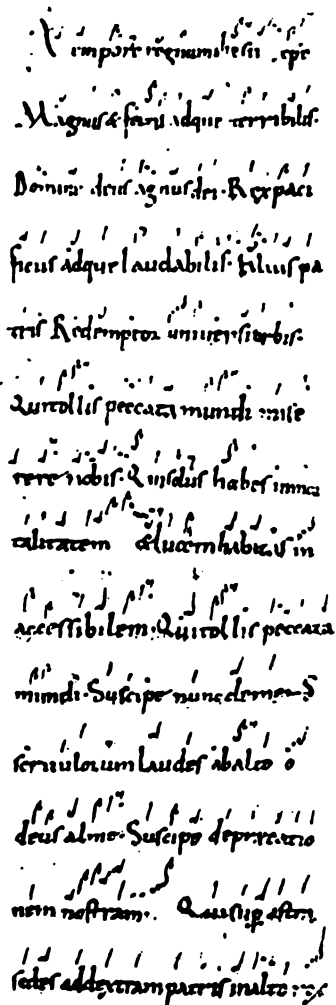 regnum ihesu xpe
Magnus & fortis adque terribilis.
Domine deus agnus dei. Rex paci
ficus adque laudabilis. Filius pa
tris Redemptor universi orbis.
Qui tollis peccata mundi mise
rere nobis. Qui solus habes inmor
talitatem & lucem habitas in
accessibilem. Qui tollis peccata
mundi. Suscipe nunc clemens
servulorum laudes ab alto o
deus alme. Suscipe deprecatio
nem nostram. Qui sup astra
sedes ad dextram patris in alto